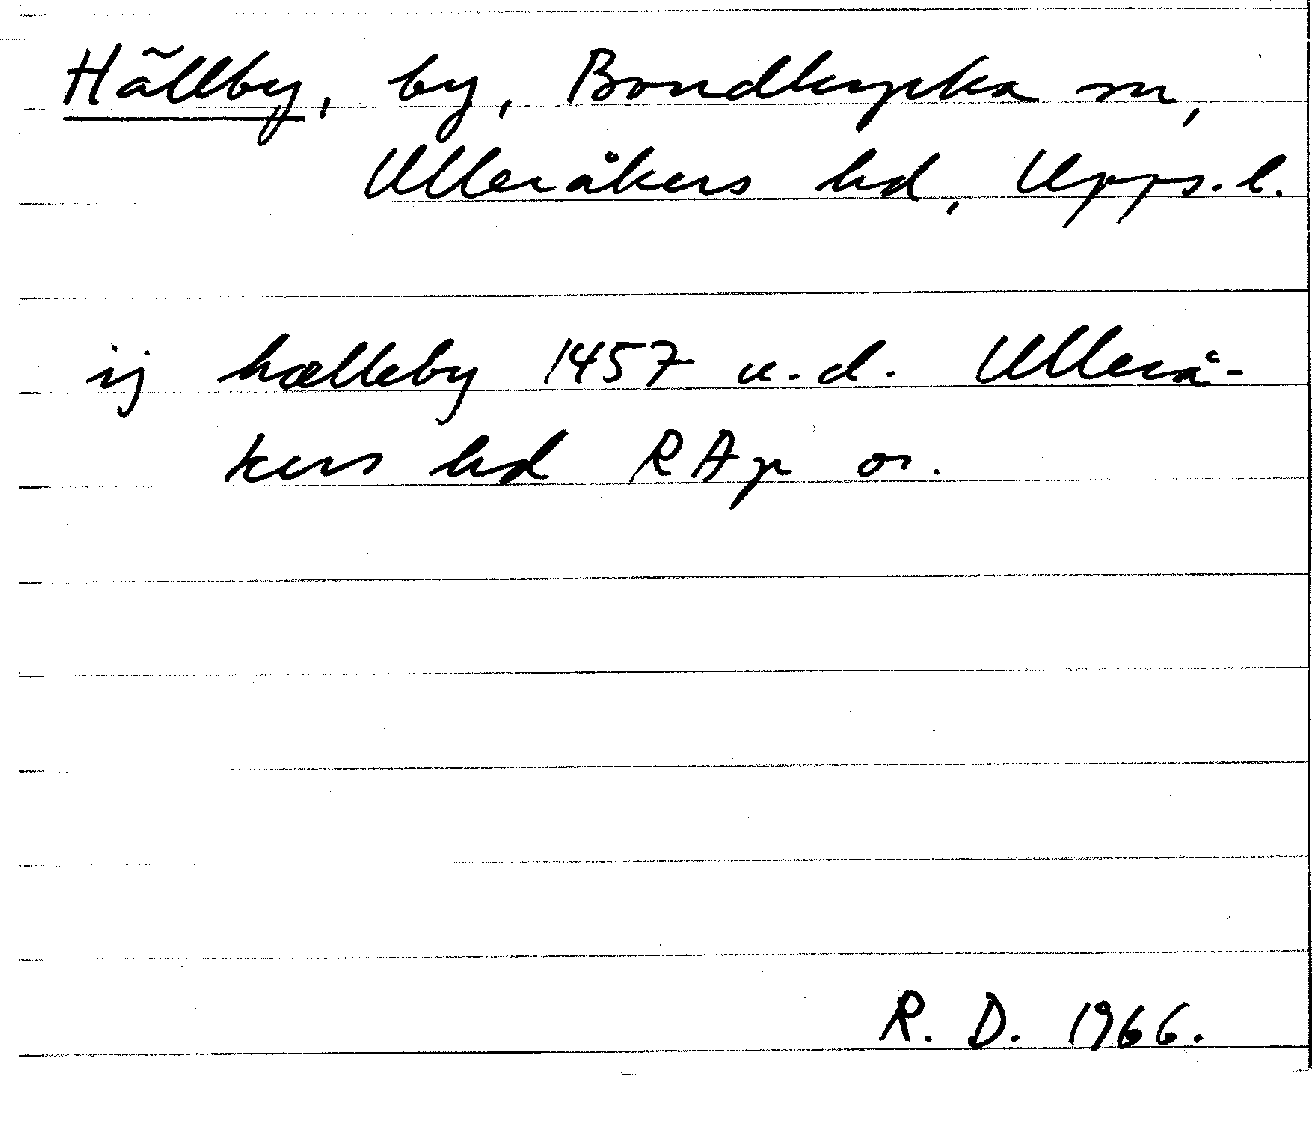 Hällby, by, Bondkyrka sn,
Ulleråkers hd, Upps. l.
ij hælleby 1457 u.d. Ullerå-
kers hd RAp or.
R. D. 1966.